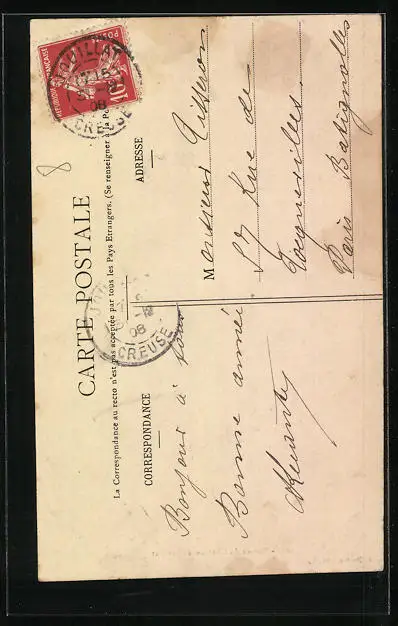 CARTE POSTALE
La Correspondance au recto n'est pas acceptée par tous les Pays Etrangers. (Se renseigner à la Po
CORRESPONDANCE
ADRESSE
Bonjour à tous
Bonne année
Monsieur Tisseron
57 Rue de
Tocqueville
Paris Batignolles
REPUBLIQUE FRANÇAISE
10
POSTES
08
CREUSE
08
CREUSE
8